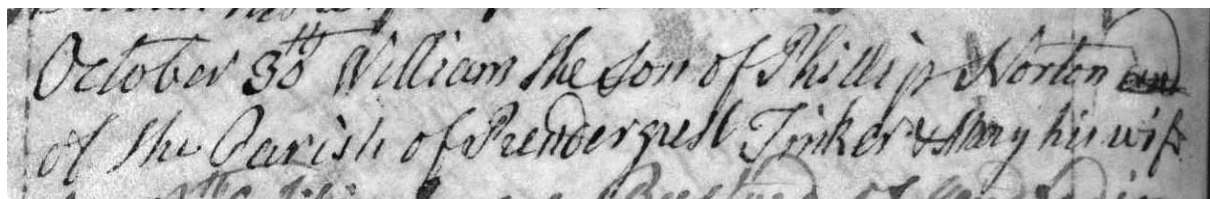 October 30th William the son of Phillip Norton
of the Parish of Prendergest Tinker & Mary his wife